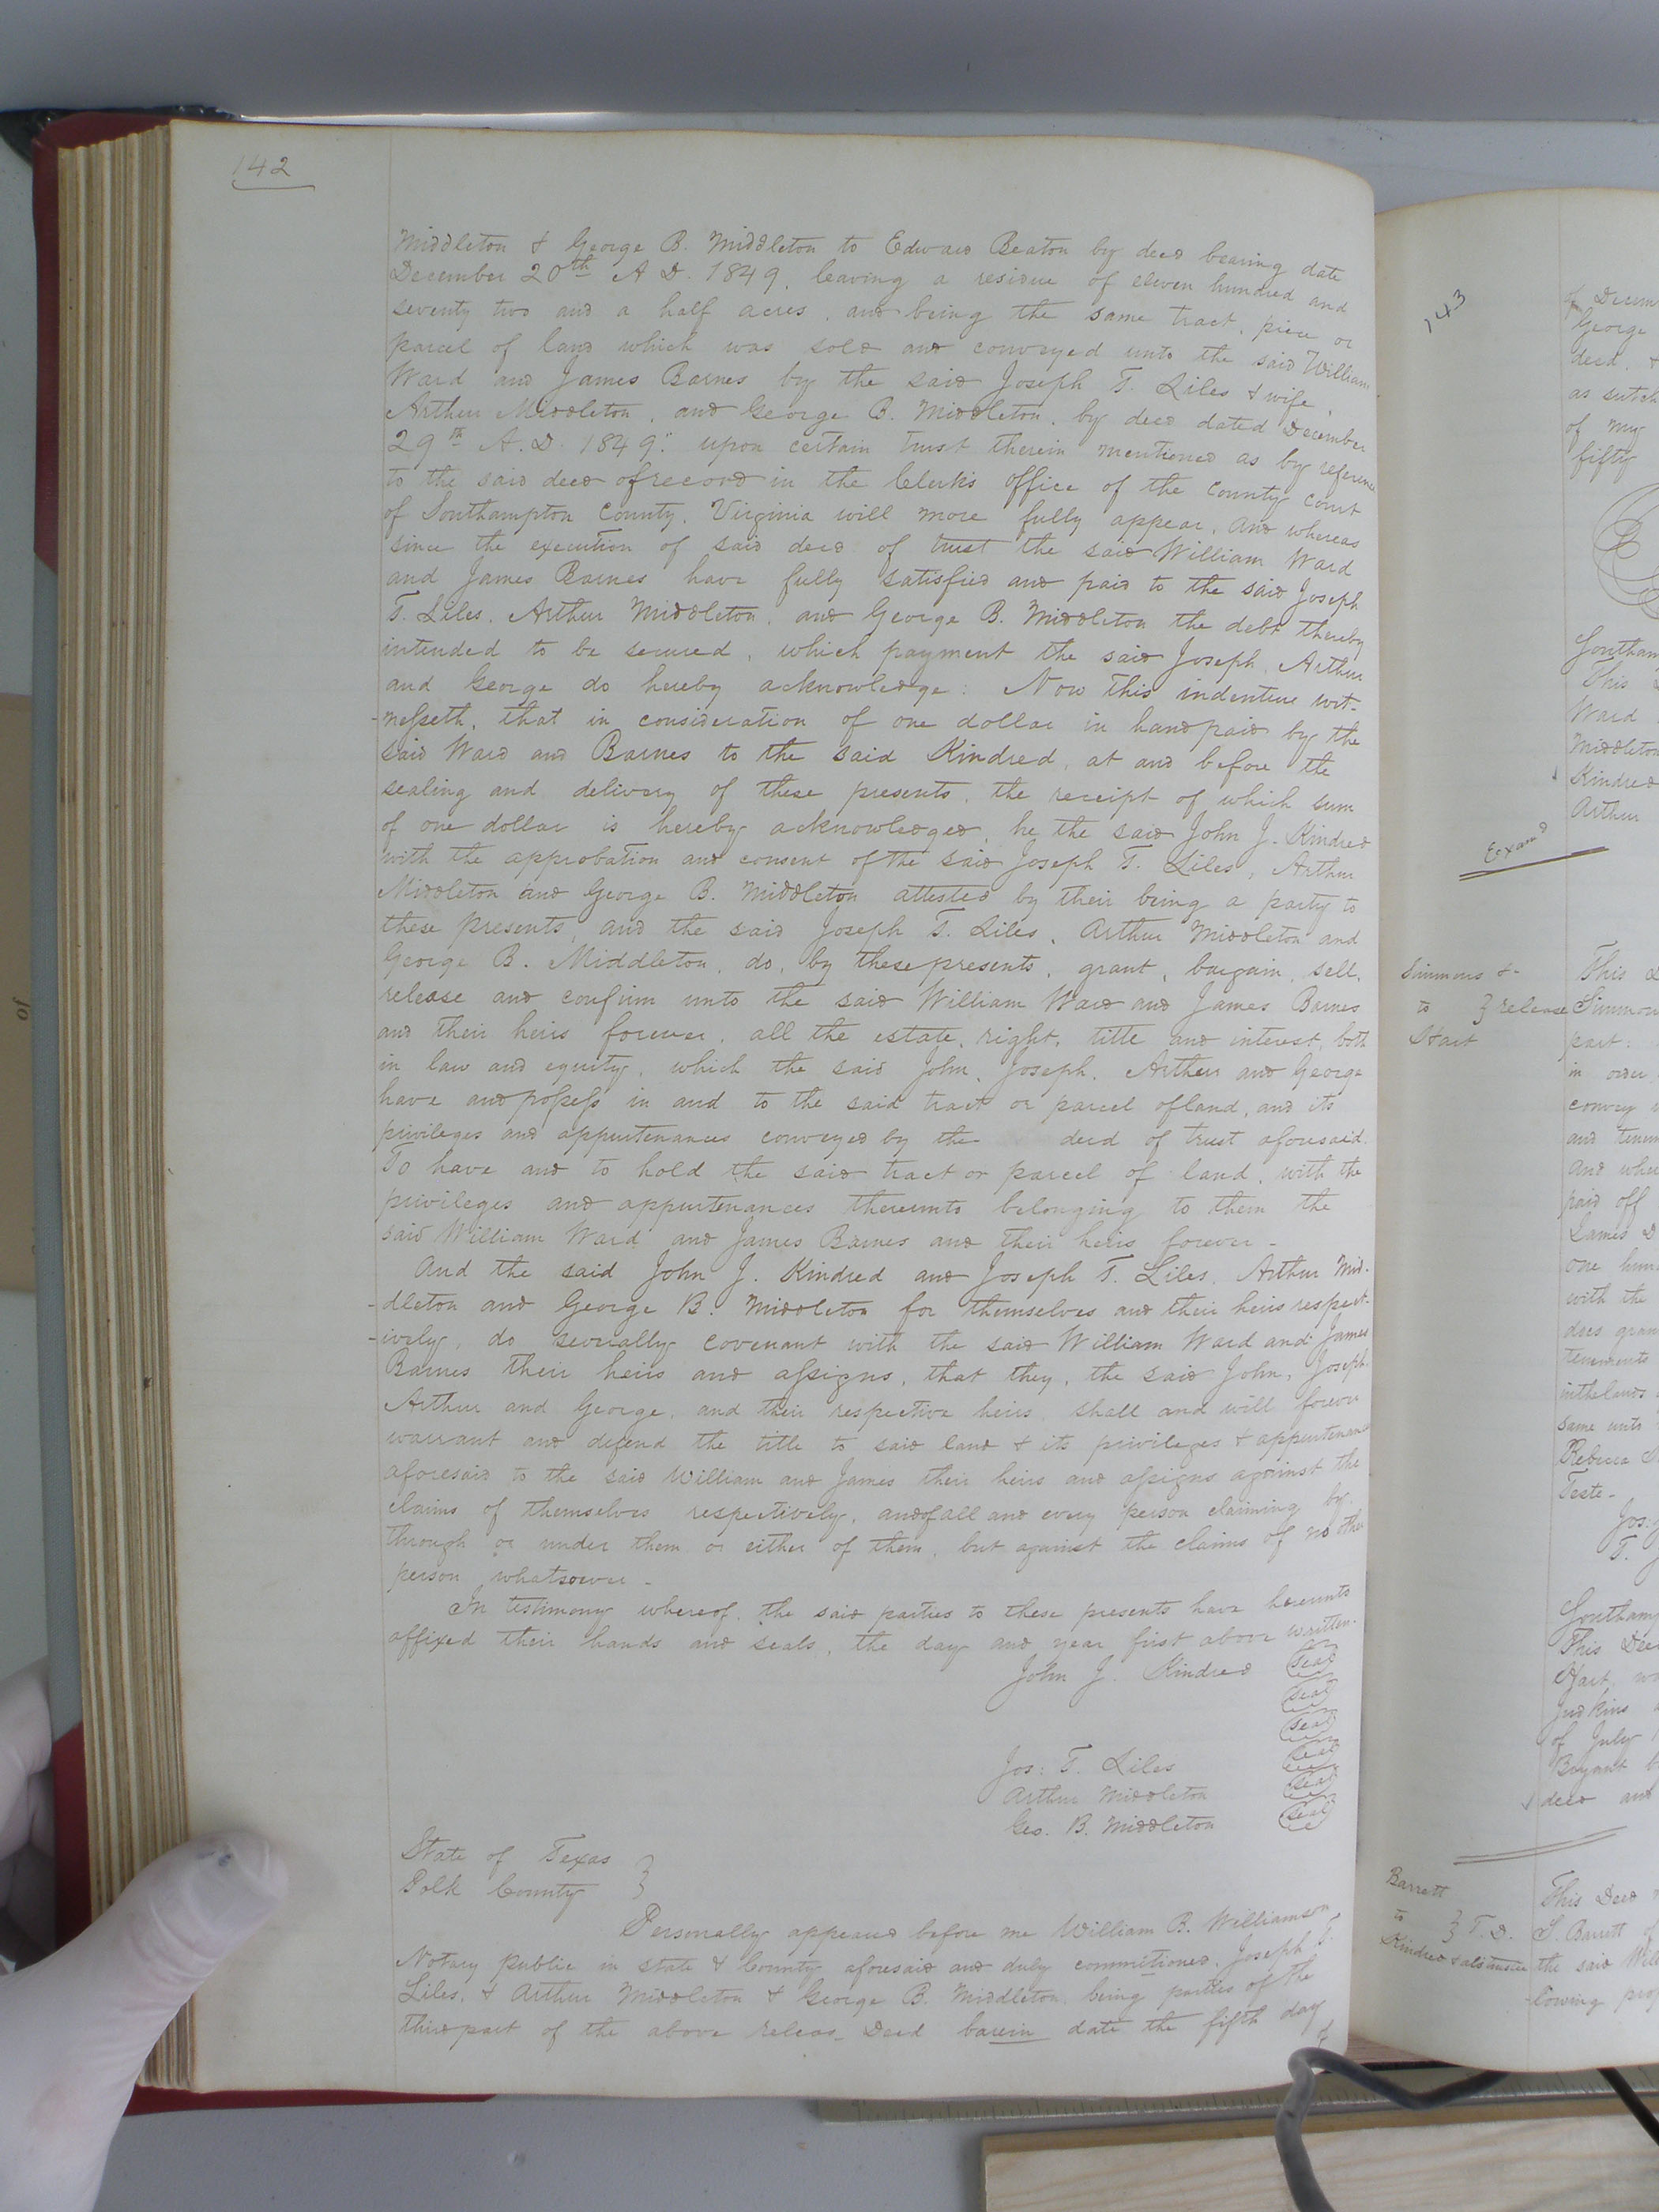 142
Middleton & George B. Middleton to Edward Beaton by deed bearing date
December 20th A D. 1849, leaving a residue of eleven hundred and
seventy two and a half acres, and being the same tract, piece or
parcel of land which was sold and conveyed unto the said William
Ward and James Barnes by the said Joseph T. Liles & wife,
Arthur Middleton, and George B. Middleton, by deed dated December
29th A.D. 1849: upon certain trust therein mentioned as by reference
to the said deed of record in the Clerk's office of the County court
of Southampton County, Virginia will more fully appear, and whereas
since the execution of said deed of trust the said William Ward
and James Barnes have fully satisfied and paid to the said Joseph
T. Liles, Arthur Middleton, and George B. Middleton the debt thereby
intended to be secured, which payment the said Joseph, Arthur
and George do hereby acknowledge: Now this indenture wit-
-nesseth, that in consideration of one dollar in hand paid by the
said Ward and Barnes to the said Kindred, at and before the
sealing and delivery of these presents, the receipt of which sum
of one dollar is hereby acknowledged, he the said John J. Kindred
with the approbation and consent of the said Joseph T. Liles, Arthur
Middleton and George B. Middleton attested by their being a party to
these presents, and the said Joseph T. Liles, Arthur Middleton and
George B. Middleton, do, by these presents, grant, bargain, sell,
release and confirm unto the said William Ward and James Barnes
and their heirs forever, all the estate, right, title and interest, both
in law and equity, which the said John, Joseph, Arthur and George
have and possess in and to the said tract or parcel of land, and its
privileges and appurtenances conveyed by the deed of trust aforesaid.
To have and to hold the said tract or parcel of land, with the
privileges and appurtenances thereunto belonging to them the
said William Ward and James Barnes and their heirs forever -
And the said John J. Kindred and Joseph T. Liles, Arthur Mid-
-dleton and George B. Middleton for themselves and their heirs respect-
-ively, do severally covenant with the said William Ward and James
Barnes their heirs and assigns, that they, the said John, Joseph,
Arthur and George, and their respective heirs, shall and will forever
warrant and defend the title to said land & its privileges & appurtenances
aforesaid to the said William and James their heirs and assigns against the
claims of themselves respectively, and of all and every person claiming by,
through or under them or either of them, but against the claims of no other
person whatsoever -
In testimony whereof, the said parties to these presents have hereunto
affixed their hands and seals, the day and year first above written.
John J. Kindred Seal
Seal
Seal
Jos: T. Liles Seal
Arthur Middleton Seal
Geo. B. Middleton Seal
State of Texas }
Polk County }
Personally appeared before me William B. Williamson,
Notary public in state & County aforesaid and duly committioned, Joseph T.
Liles, & Arthur Middleton & George B. Middleton, being parties of the
third part of the above releas_ Deed barein date the fifth day
of
143
of Decem
George
deed, &
as such
of my
fifty
Southam
This
Ward
Middleton
Kindred
Arthur
Examd
Simmons &
to } release
Hart
This D
Simmon
part:
in order
convey
and tenem
and whe
paid off
James D
one hun
with the
does gran
tenements
in the lands
same unto
Rebecca
Teste -
Jos:
T. J
Southam
This Dee
Hart, wa
Judkins
of July
Bryant
deed and
Barrett
to } T. D.
Kindred
This Deed
S. Barrett of
the said Will
-lowing prop